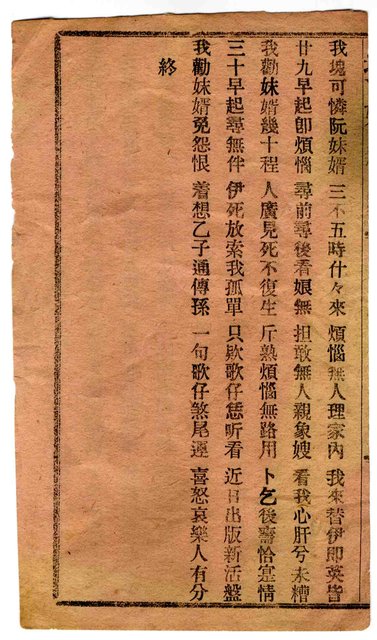 我塊可憐阮妹婿 三不五時什々來 煩惱無人理家內 我來替伊即英皆
廿九早起即煩惱 尋前尋後看娘無 担敢無人親象嫂 看我心肝兮未糟
我勸妹婿幾十程 人廣見死不復生 斤熟煩惱無路用 卜乞後齋恰寔情
三十早起尋無伴 伊死放索我孤單 只欺歌仔恁听看 近日出版新活盤
我勸妹婿免怨恨 着想乙子通傳孫 一句歌仔煞尾遛 喜怒哀樂人有分
終